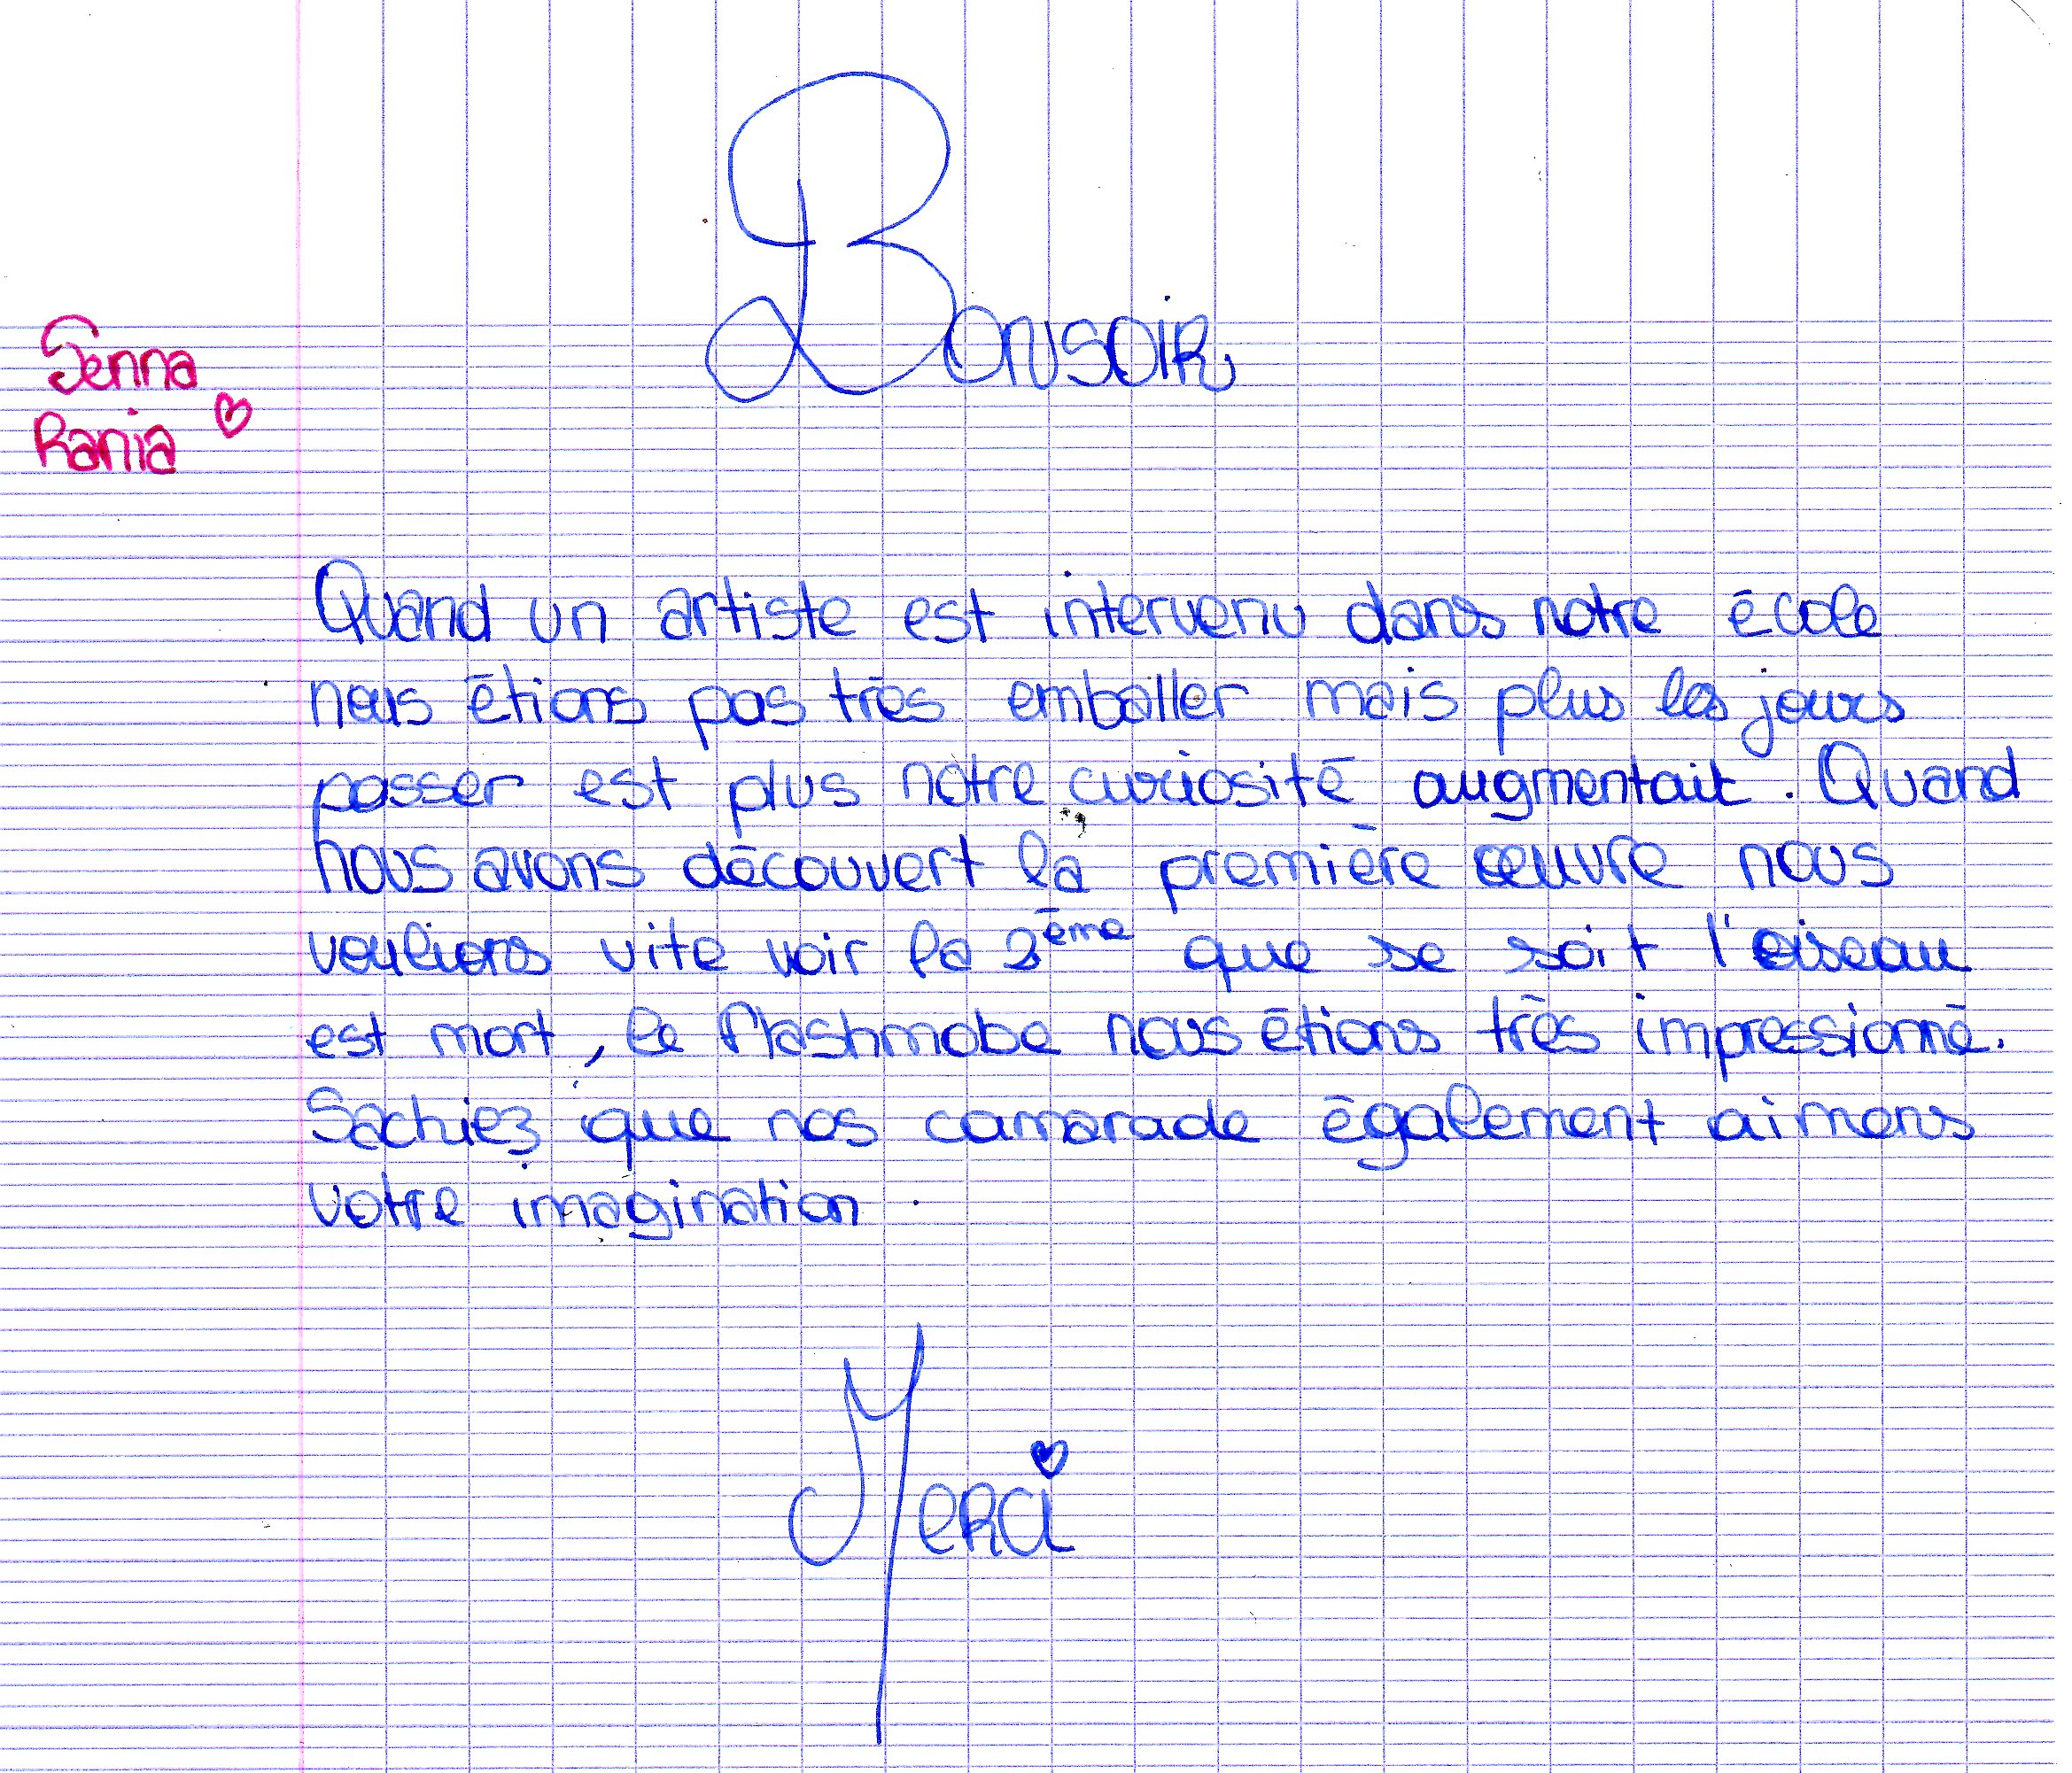 Bonsoir
Senna
Rania
Quand un artiste est intervenu dans notre école
nous étions pas très emballer mais plus les jours
passer est plus notre curiosité augmentait. Quand
nous avons découvert la première œuvre nous
voulions vite voir la 2ème que se soit l'oiseau
est mort, le flashmobe nous étions très impressionné.
Sachiez que nos camarade également aimons
votre imagination.
Merci